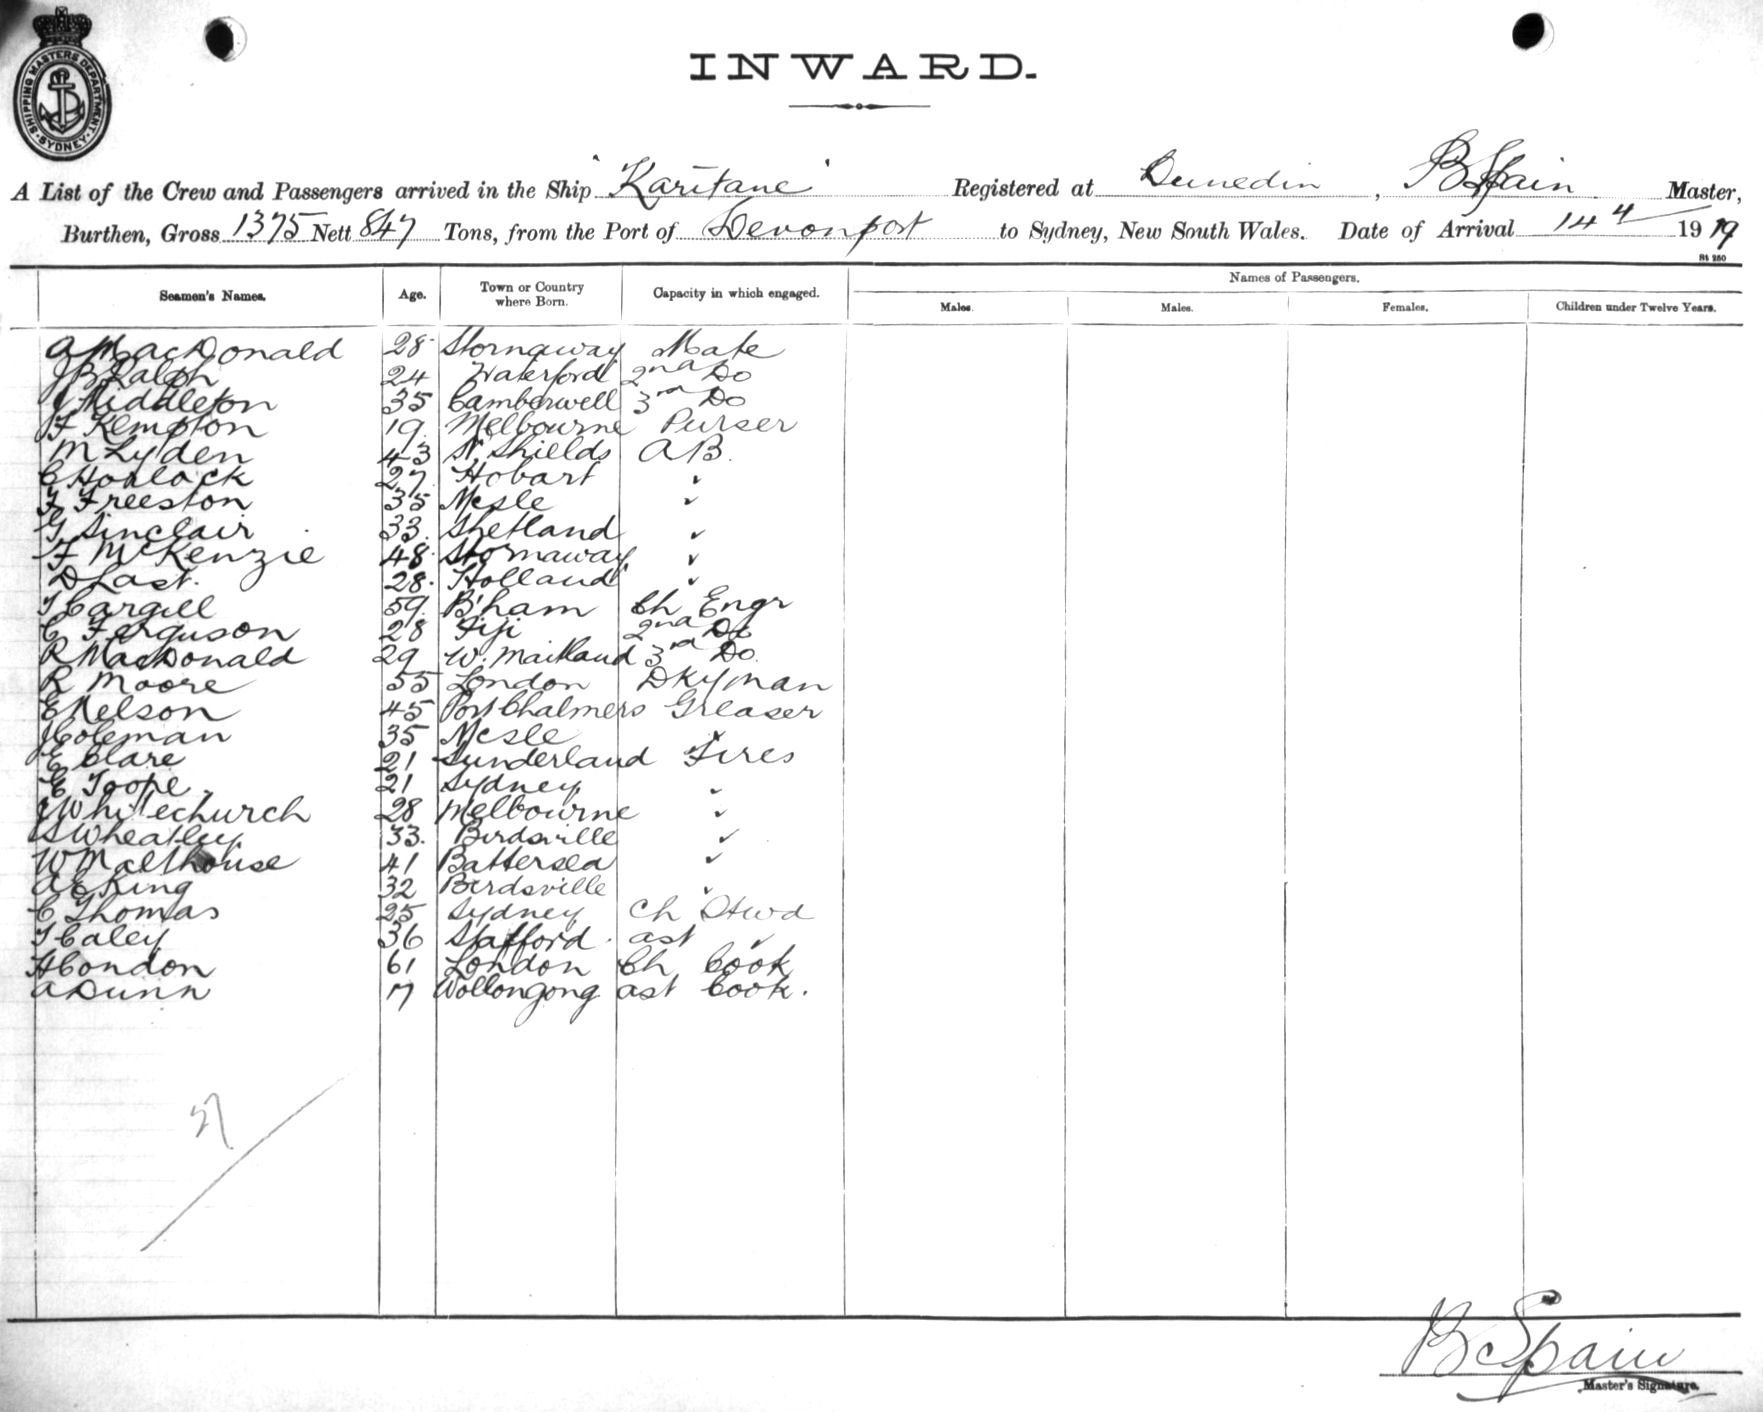 SHIPPING MASTERS DEPARTMENT. SYDNEY
INWARD.
A List of the Crew and Passengers arrived in the Ship "Karitane" Registered at Dunedin, B Spain Master,
Burthen, Gross 1375 Nett 847 Tons, from the Port of Devonport to Sydney, New South Wales. Date of Arrival 14 4 1919
St 280
Names of Passengers.
Seamen's Names. Age. Town or Country where Born. Capacity in which engaged. Males. Males. Females. Children under Twelve Years.
A MacDonald 28 Stornaway Mate
J B Ralph 24 Waterford 2nd Do
J Middleton 35 Camberwell 3rd Do
F Kempton 19 Melbourne Purser
M Lyden 43 N. Shields AB.
C Horlock 27 Hobart "
F Freeston 35 Ncsle "
G Sinclair 33 Shetland "
F McKenzie 48 Stornaway "
D Last. 28 Holland "
T Cargill 59 B'ham Ch Engr
C Ferguson 28 Fiji 2nd Do
R MacDonald 29 W. Maitland 3rd Do.
R Moore 55 London Dkyman
E Nelson 45 Port Chalmers Greaser
J Coleman 35 Ncsle "
E Clare 21 Sunderland Fires
E Toope 21 Sydney "
J Whitechurch 28 Melbourne "
S Wheatley 33. Birdsville "
W Malthouse 41 Battersea "
A E King 32 Birdsville "
C Thomas 25 Sydney Ch Stwd
T Caley 36 Stafford. ast "
H Condon 61 London Ch Cook
A Dunn 17 Wollongong ast Cook.
27
B Spain
Master's Signature.